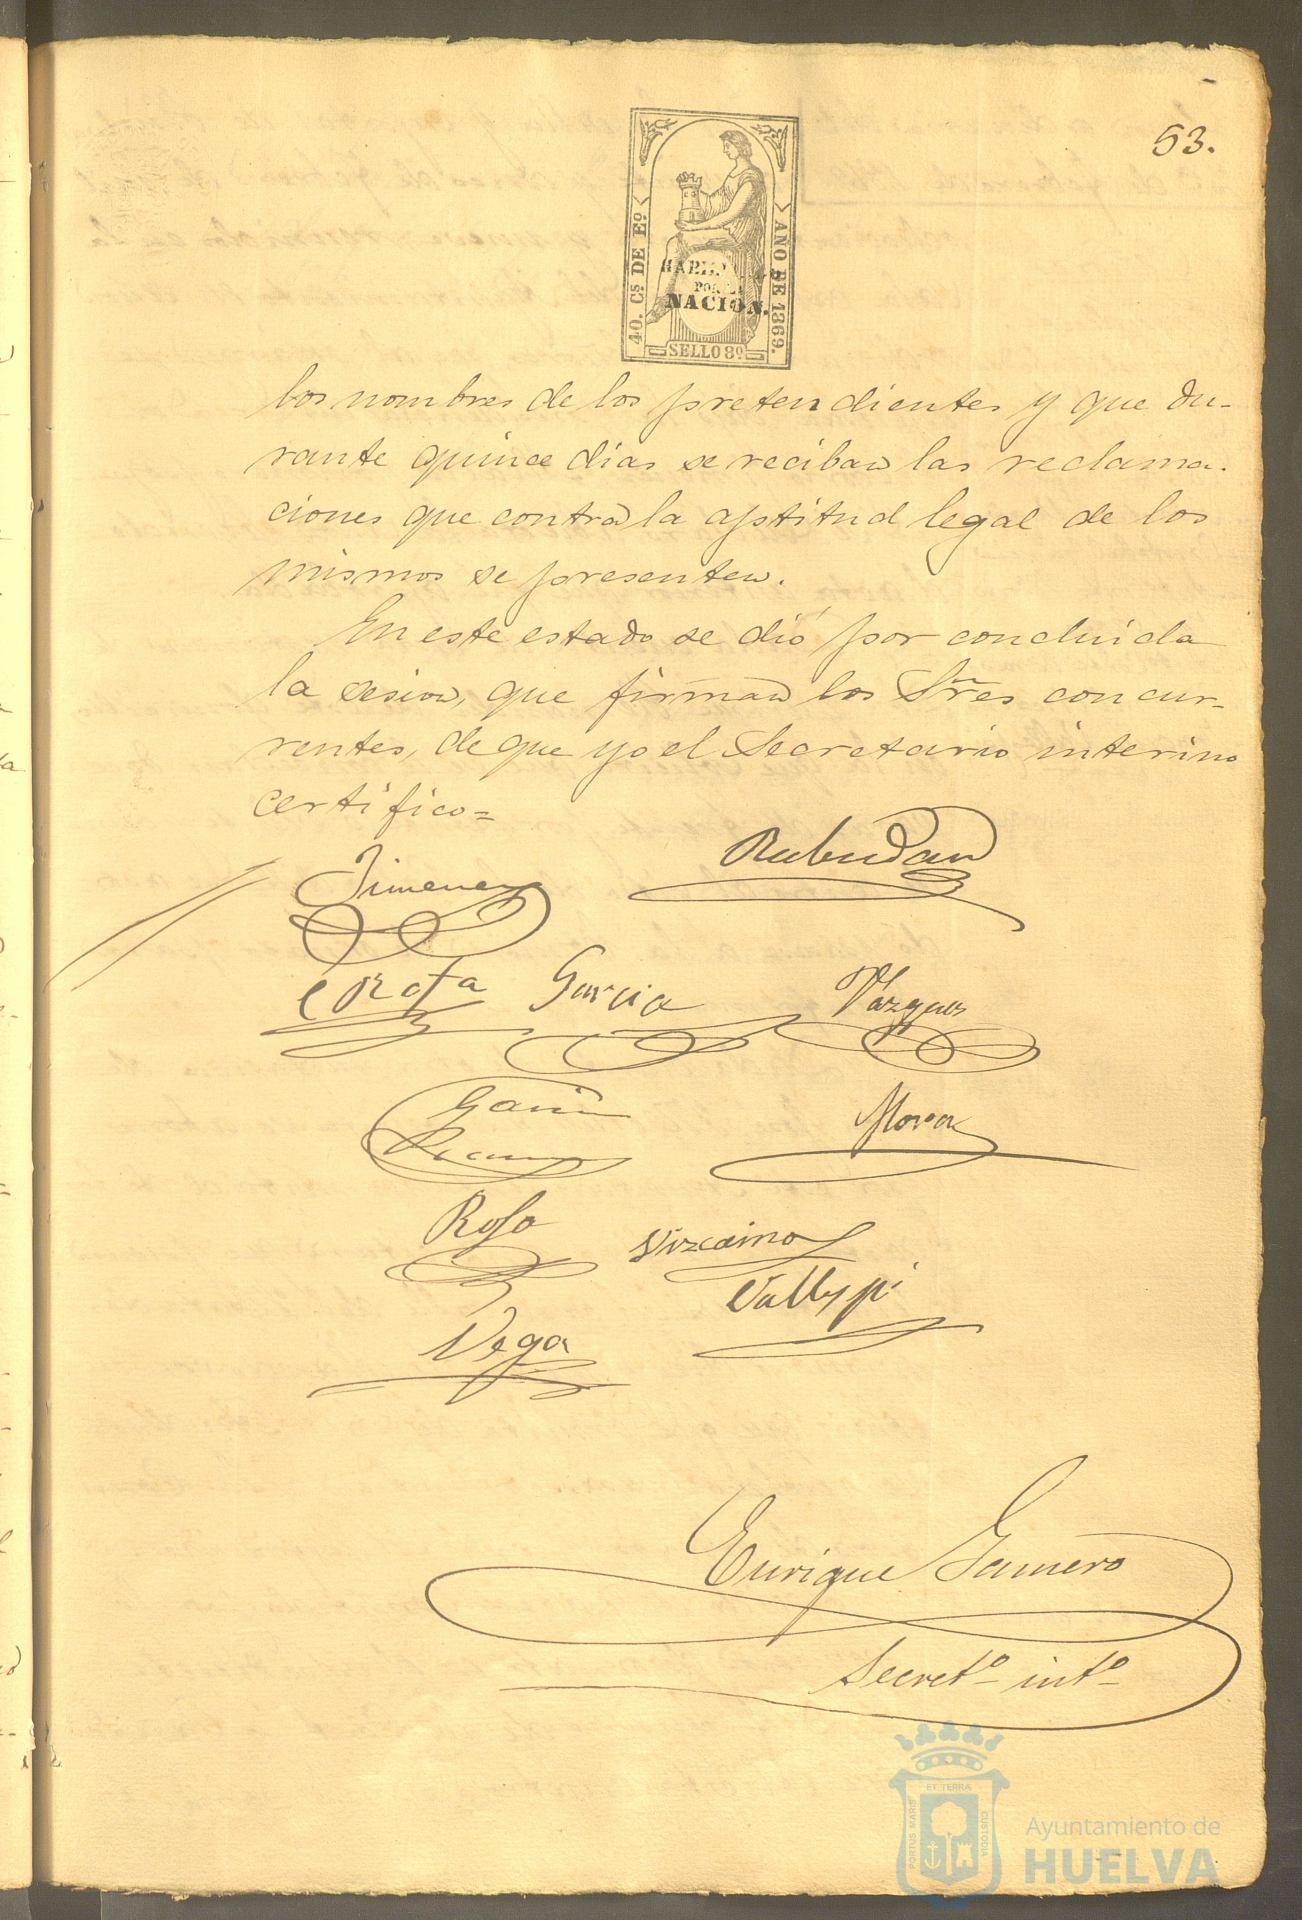 53.
40. Cs DE Eo.
AÑO DE 1869.
POR LA
NACION.
SELLO 8º
los nombres de los pretendientes y que du-
rante quince dias se reciban las reclama-
ciones que contra la aptitud legal de los
mismos se presenten.
En este estado se dió por concluida
la sesion, que firman los Sres concur-
rentes, de que yo el Secretario interino
certifico=
Jimenez
Garcia
Vazquez
Mora
Vizcaino
Vega
Enrique Gamero
Secretº intº
PORTUS MARIS
ET TERRÆ
CUSTODIA
Ayuntamiento de
HUELVA